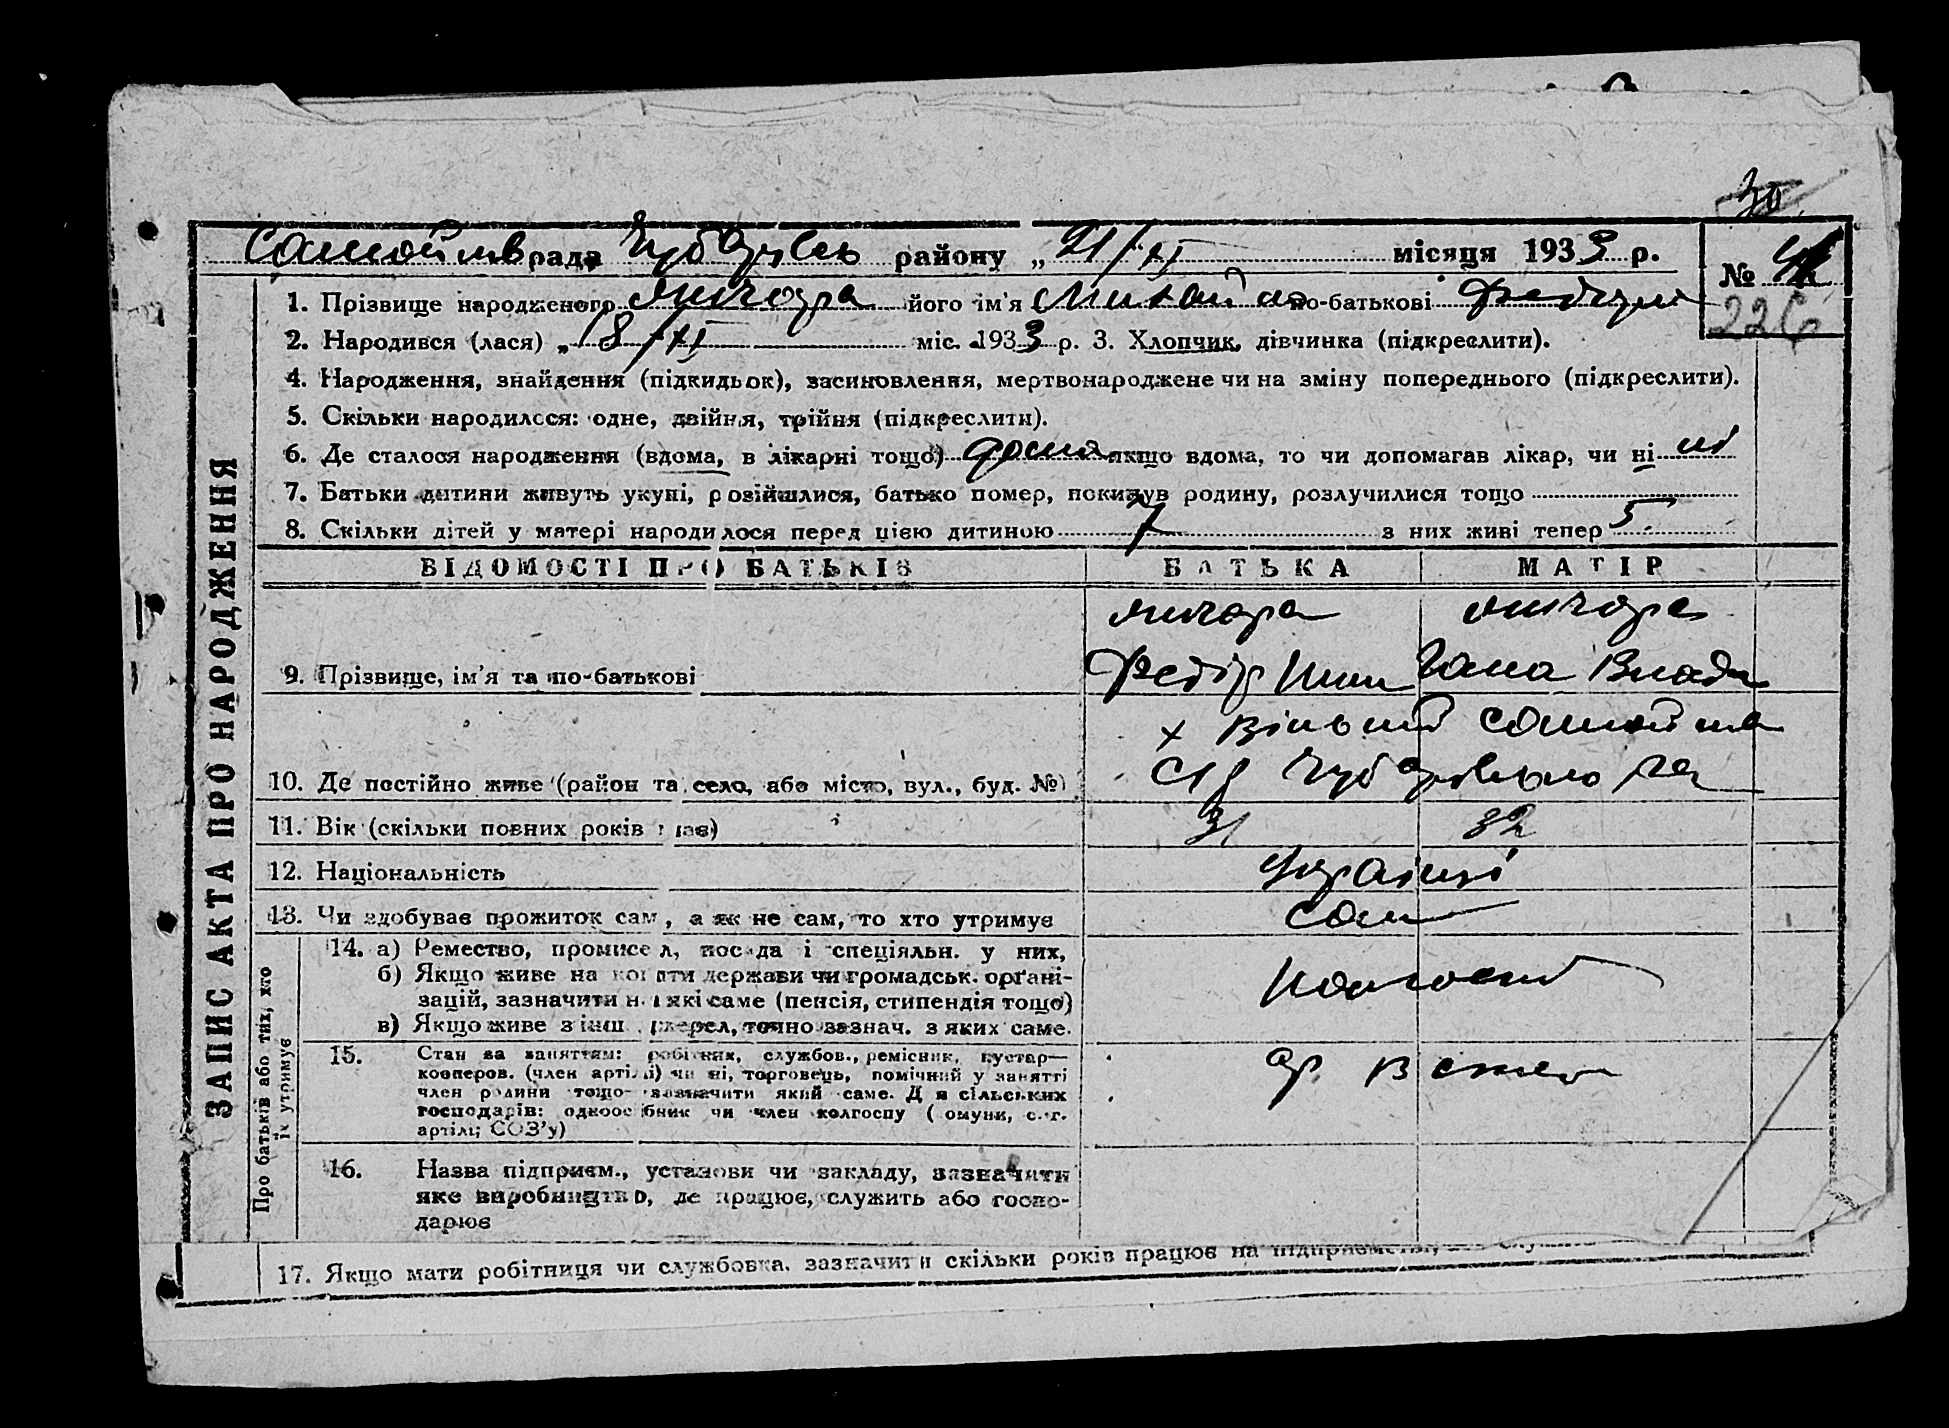 30
Самойлів рада Чубарівсь району „21/XI місяця 1933 р.
№ 41
226
1. Прізвище народженого його ім'я Михайло по-батькові Федоров
2. Народився (лася) „18/XI міс. 1933 р. 3. Хлопчик, дівчинка (підкреслити).
4. Народження, знайдення (підкидьок), засиновлення, мертвонароджене чи на зміну попереднього (підкреслити).
5. Скільки народилося: одне, двійня, трійня (підкреслити).
6. Де сталося народження (вдома, в лікарні тощо) дома якщо вдома, то чи допомагав лікар, чи ні ні
7. Батьки дитини живуть укупі, розійшлися, батько помер, покинув родину, розлучилися тощо
8. Скільки дітей у матері народилося перед цією дитиною 7 з них живі тепер 5
ВІДОМОСТІ ПРО БАТЬКІВ БАТЬКА МАТІР
9. Прізвище, ім'я та по-батькові Федір Ганна Влади
х Вільний
10. Де постійно живе (район та село, або місто, вул., буд. №) С/р Чубарівського
11. Вік (скільки повних років має) 31 32
12. Національність Українці
13. Чи здобуває прожиток сам, а як не сам, то хто утримує сам
14. а) Ремество, промисел, посада і спеціяльн. у них,
б) Якщо живе на кошти держави чи громадськ. органі-
зацій, зазначити на які саме (пенсія, стипендія тощо)
в) Якщо живе з інш. джерел, точно зазнач. з яких саме.
Колгосп
15. Стан за заняттям: робітник, службов., ремісник, кустар—
кооперов. (член артілі) чи ні, торговець, помічний у занятті
член родини тощо- зазначити який саме. Для сільських
господарів: одноосібник чи член колгоспу (комуни, с.-г.
артілі; СОЗ'у)
16. Назва підприєм., установи чи закладу, зазначити
яке виробництво, де працює, служить або госпо-
дарює
17. Якщо мати робітниця чи службовка, зазначити скільки років працює на підприємстві,
ЗАПИС АКТА ПРО НАРОДЖЕННЯ
Про батьків або тих, хто
їх утримує